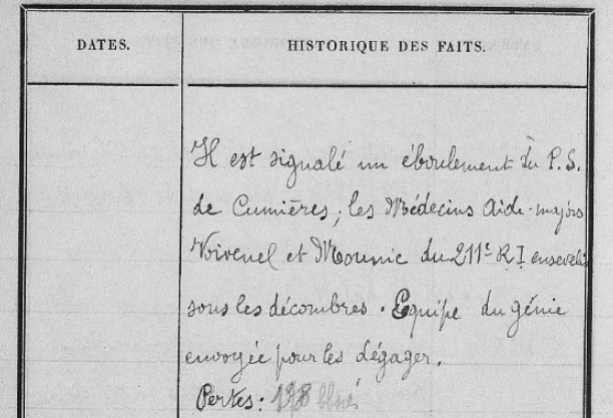 DATES.
HISTORIQUE DES FAITS.
Il est signalé un éboulement du P.S.
de Cumières, les Médecins Aide-majors
Voivenel et Mounic du 211e R.I enseveli
sous les décombres. Equipe du génie
envoyée pour les dégager.
Pertes: